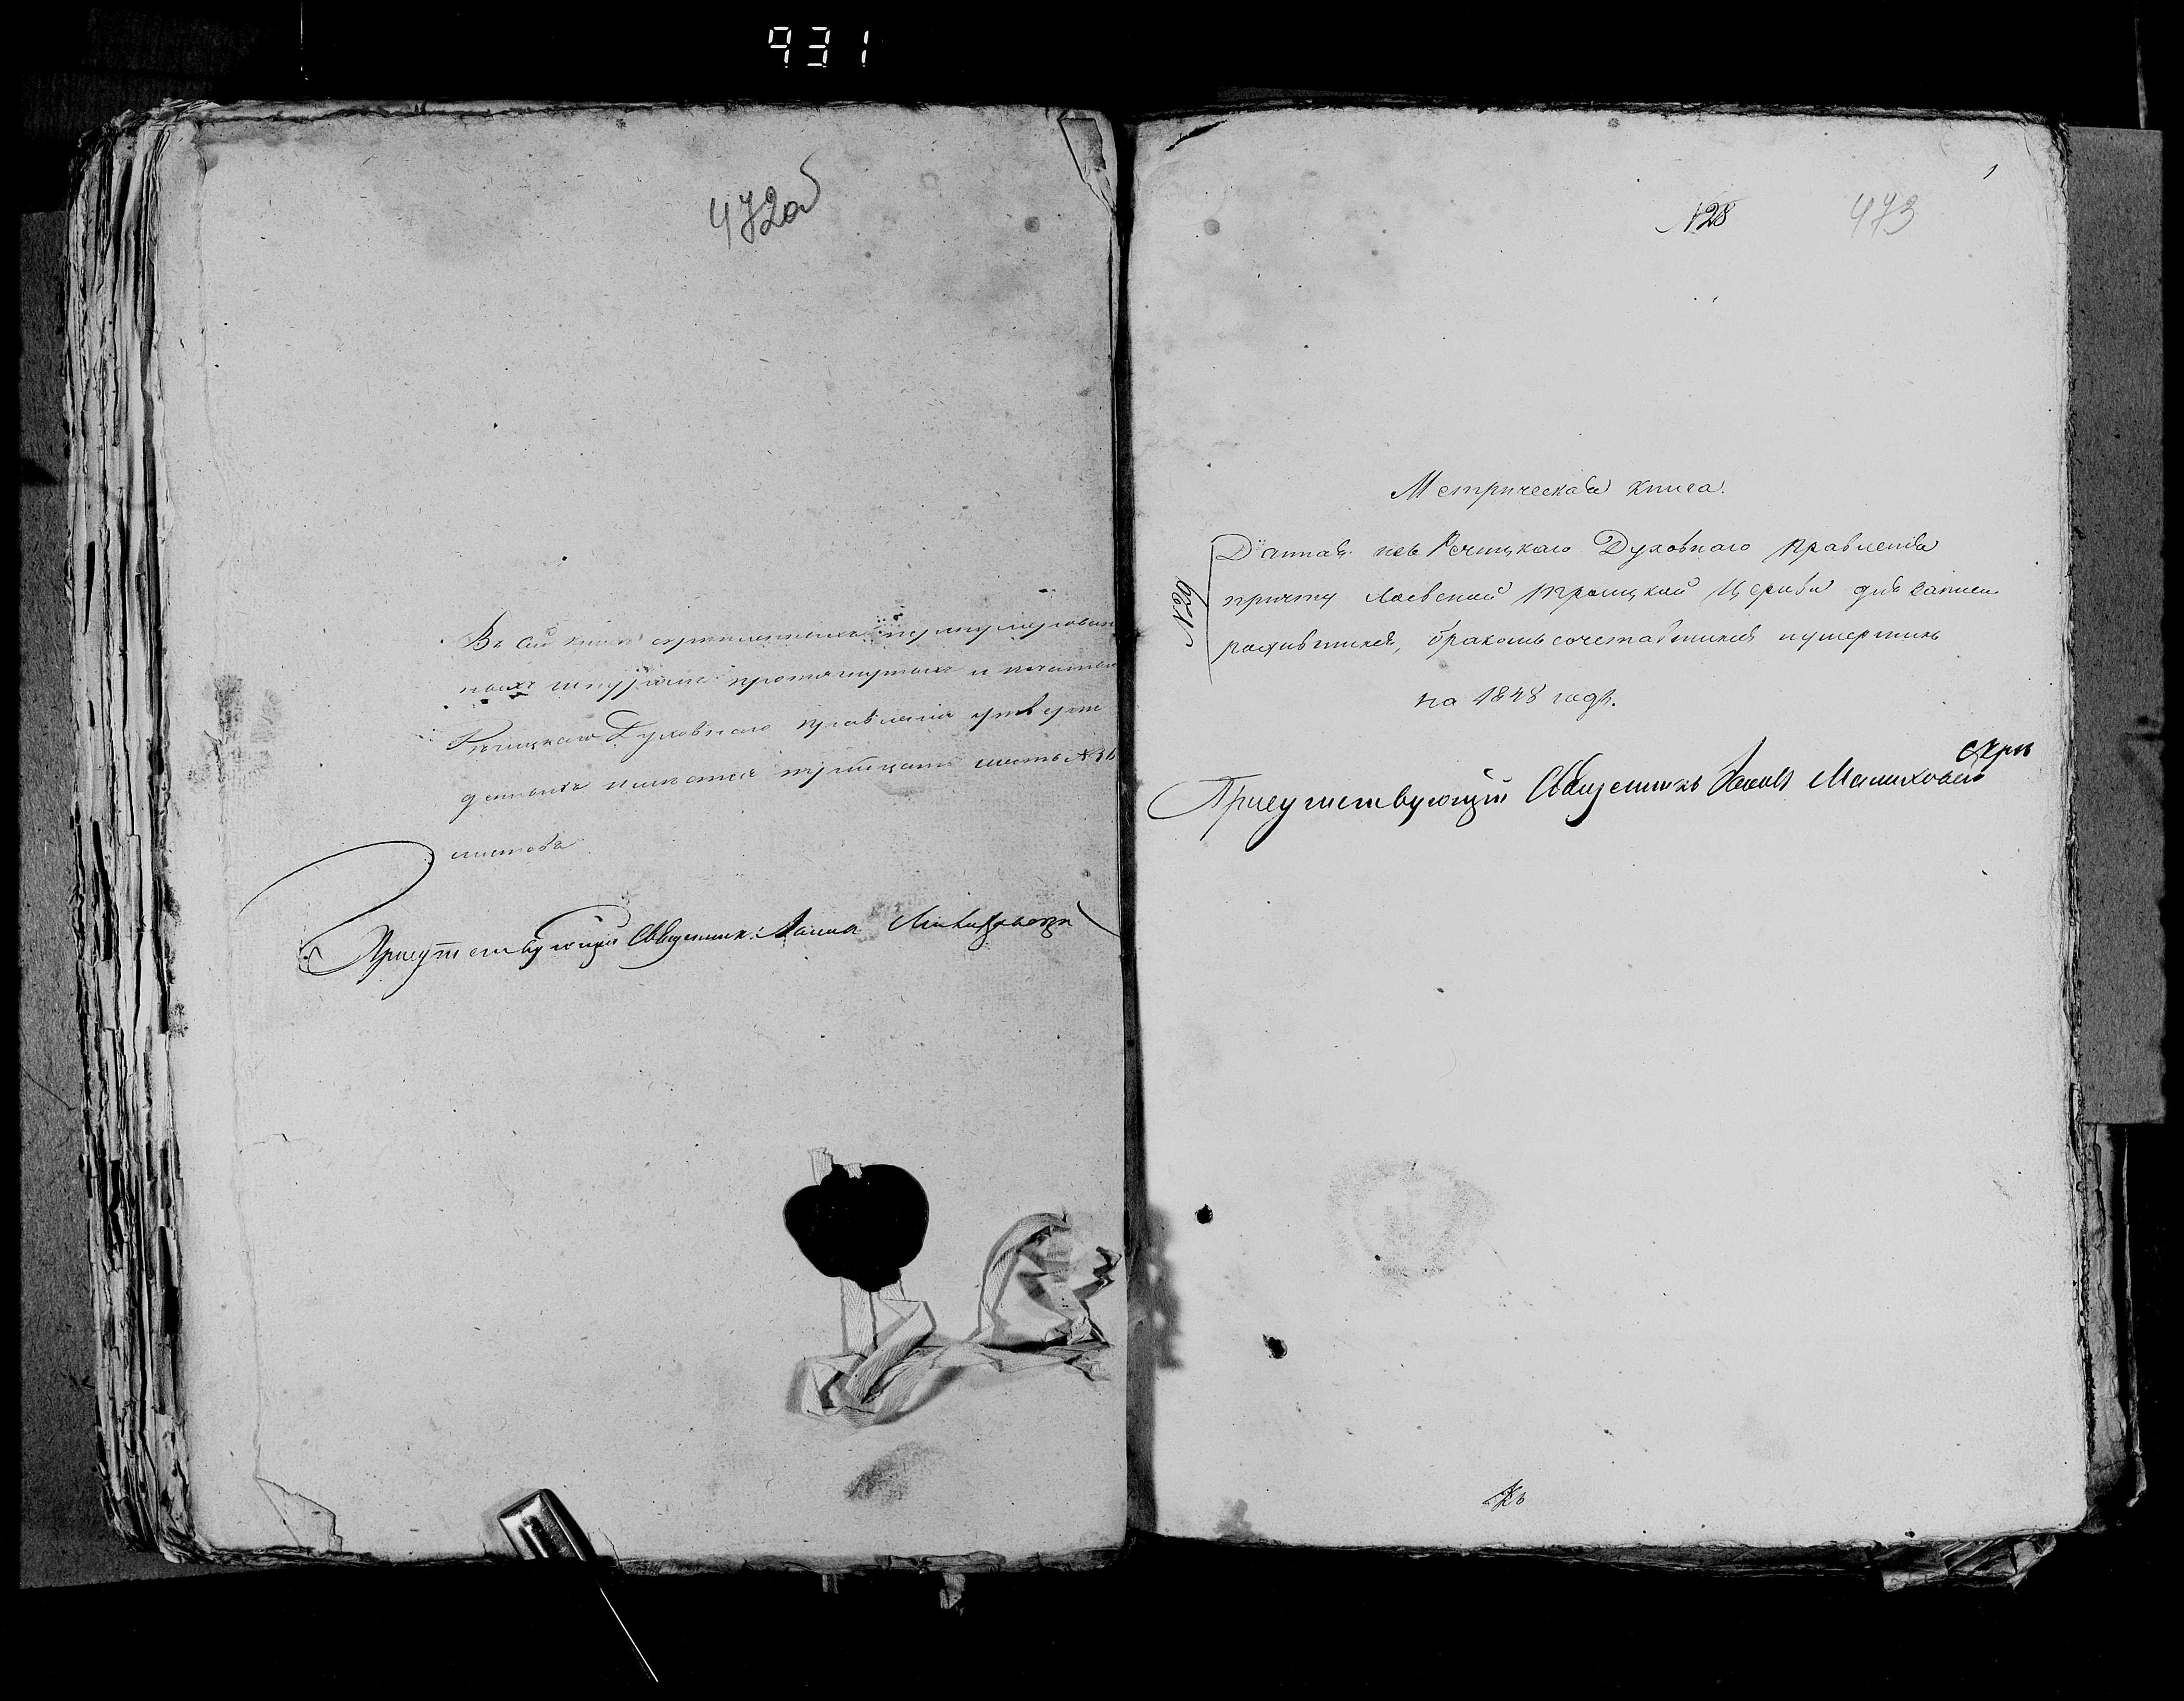 931
472об
Въ сей книгѣ скрепленныхъ пронумерован
ныхъ шнуромъ протянутыхъ и печатью
Речицкаго Духовнаго правления утверж
денныхъ листовъ тритцать шесть №36
листовъ
Присутствующий Священник:
1
№28 473
Метрическая книга.
Данная изъ Речицкаго Духовнаго Правления
№29
причту Лоевской Троицкой Церкви для записи
родившихся, бракомъ сочетавшихся и умершихъ
на 1848 годъ.
Присутствующий Священникъ
Къ